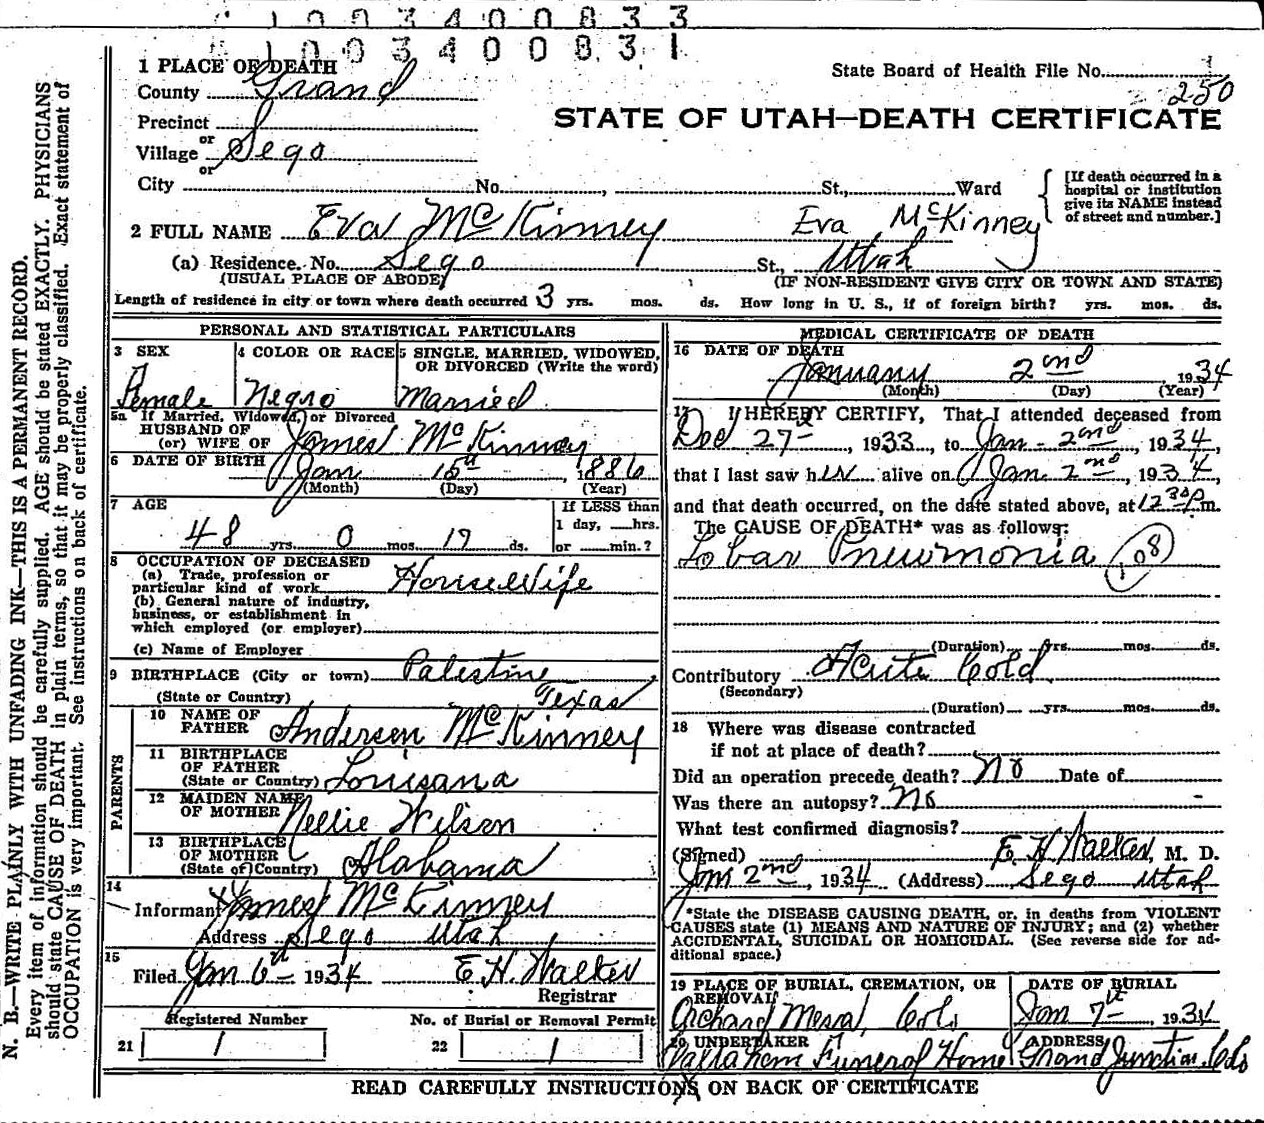 1003400833
1003400831
1 PLACE OF DEATH
County Grand
State Board of Health File No. 250
STATE OF UTAH—DEATH CERTIFICATE
Precinct
or
Village Sego
or
City No. , St., Ward
[If death occurred in a hospital or institution give its NAME instead of street and number.]
2 FULL NAME Eva McKinney Eva McKinney
(a) Residence. No. Sego St., Utah
(USUAL PLACE OF ABODE) (IF NON-RESIDENT GIVE CITY OR TOWN AND STATE)
Length of residence in city or town where death occurred 3 yrs. mos. ds. How long in U. S., if of foreign birth? yrs. mos. ds.
PERSONAL AND STATISTICAL PARTICULARS
3 SEX
Female
4 COLOR OR RACE
Negro
5 SINGLE, MARRIED, WIDOWED, OR DIVORCED (Write the word)
Married
5a If Married, Widowed, or Divorced
HUSBAND OF
(or) WIFE OF James McKinney
6 DATE OF BIRTH Jan 15th, 1886
(Month) (Day) (Year)
7 AGE
48 yrs. 0 mos. 17 ds.
If LESS than
1 day, hrs.
or min.?
8 OCCUPATION OF DECEASED
(a) Trade, profession or
particular kind of work HouseWife
(b) General nature of industry,
business, or establishment in
which employed (or employer)
(c) Name of Employer
9 BIRTHPLACE (City or town) Palestine,
(State or Country) Texas
PARENTS
10 NAME OF FATHER Anderson McKinney
11 BIRTHPLACE OF FATHER
(State or Country) Louisana
12 MAIDEN NAME OF MOTHER Nellie Wilson
13 BIRTHPLACE OF MOTHER
(State or Country) Alabama
14
Informant James McKinney
Address Sego Utah
15
Filed Jan 6th 1934 E. H. Walker
Registrar
Registered Number
21 1
No. of Burial or Removal Permit
22 1
MEDICAL CERTIFICATE OF DEATH
16 DATE OF DEATH
January 2nd 1934
(Month) (Day) (Year)
17 I HEREBY CERTIFY, That I attended deceased from
Dec 27, 1933, to Jan - 2nd, 1934,
that I last saw her alive on Jan 2nd, 1934,
and that death occurred, on the date stated above, at 12 30 P.m.
The CAUSE OF DEATH* was as follows:
Lobar Pneumonia 108
(Duration) yrs. mos. ds.
Contributory Acute Cold
(Secondary)
(Duration) yrs. mos. ds.
18 Where was disease contracted
if not at place of death?
Did an operation precede death? No Date of
Was there an autopsy? No
What test confirmed diagnosis?
(Signed) E. H. Walker, M. D.
Jan 2nd, 1934 (Address) Sego Utah
*State the DISEASE CAUSING DEATH, or, in deaths from VIOLENT
CAUSES state (1) MEANS AND NATURE OF INJURY; and (2) whether
ACCIDENTAL, SUICIDAL OR HOMICIDAL. (See reverse side for ad-
ditional space.)
19 PLACE OF BURIAL, CREMATION, OR REMOVAL
Orchard Mesa, Colo
DATE OF BURIAL
Jan 7th, 1934
20 UNDERTAKER
Funeral Home
ADDRESS
Grand Junction Colo
READ CAREFULLY INSTRUCTIONS ON BACK OF CERTIFICATE
N. B.—WRITE PLAINLY WITH UNFADING INK—THIS IS A PERMANENT RECORD.
Every item of information should be carefully supplied. AGE should be stated EXACTLY. PHYSICIANS
should state CAUSE OF DEATH in plain terms, so that it may be properly classified. Exact statement of
OCCUPATION is very important. See instructions on back of certificate.